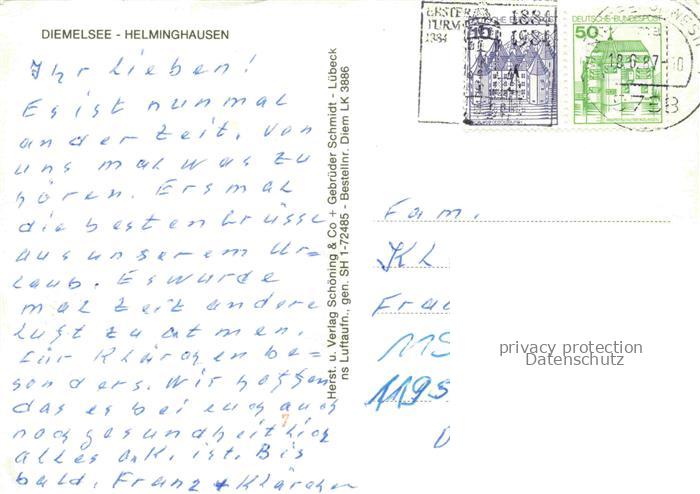 DIEMELSEE - HELMINGHAUSEN
Ihr lieben!
Es ist nunmal
an der Zeit, von
uns mal was zu
hören. Ersmal
die besten Grüsse
aus unserem Ur=
laub. Es wurde
mal Zeit andere
Luft zu atmen.
Für Klärchen be=
sonders. Wir hoffen
das es bei euch auch
noch gesundheitlich
alles o.K. ist. Bis
bald. Franz + Klärchen
Herst. u. Verlag Schöning & Co + Gebrüder Schmidt - Lübeck
ns Luftaufn., gen. SH 1-72485 - Bestellnr. Diem LK 3886
ERSTER
TURM
1884
1884
1984
DEUTSCHE BUNDESPOST
50
Fam.
Kl
Frau
119
1195
privacy protection
Datenschutz